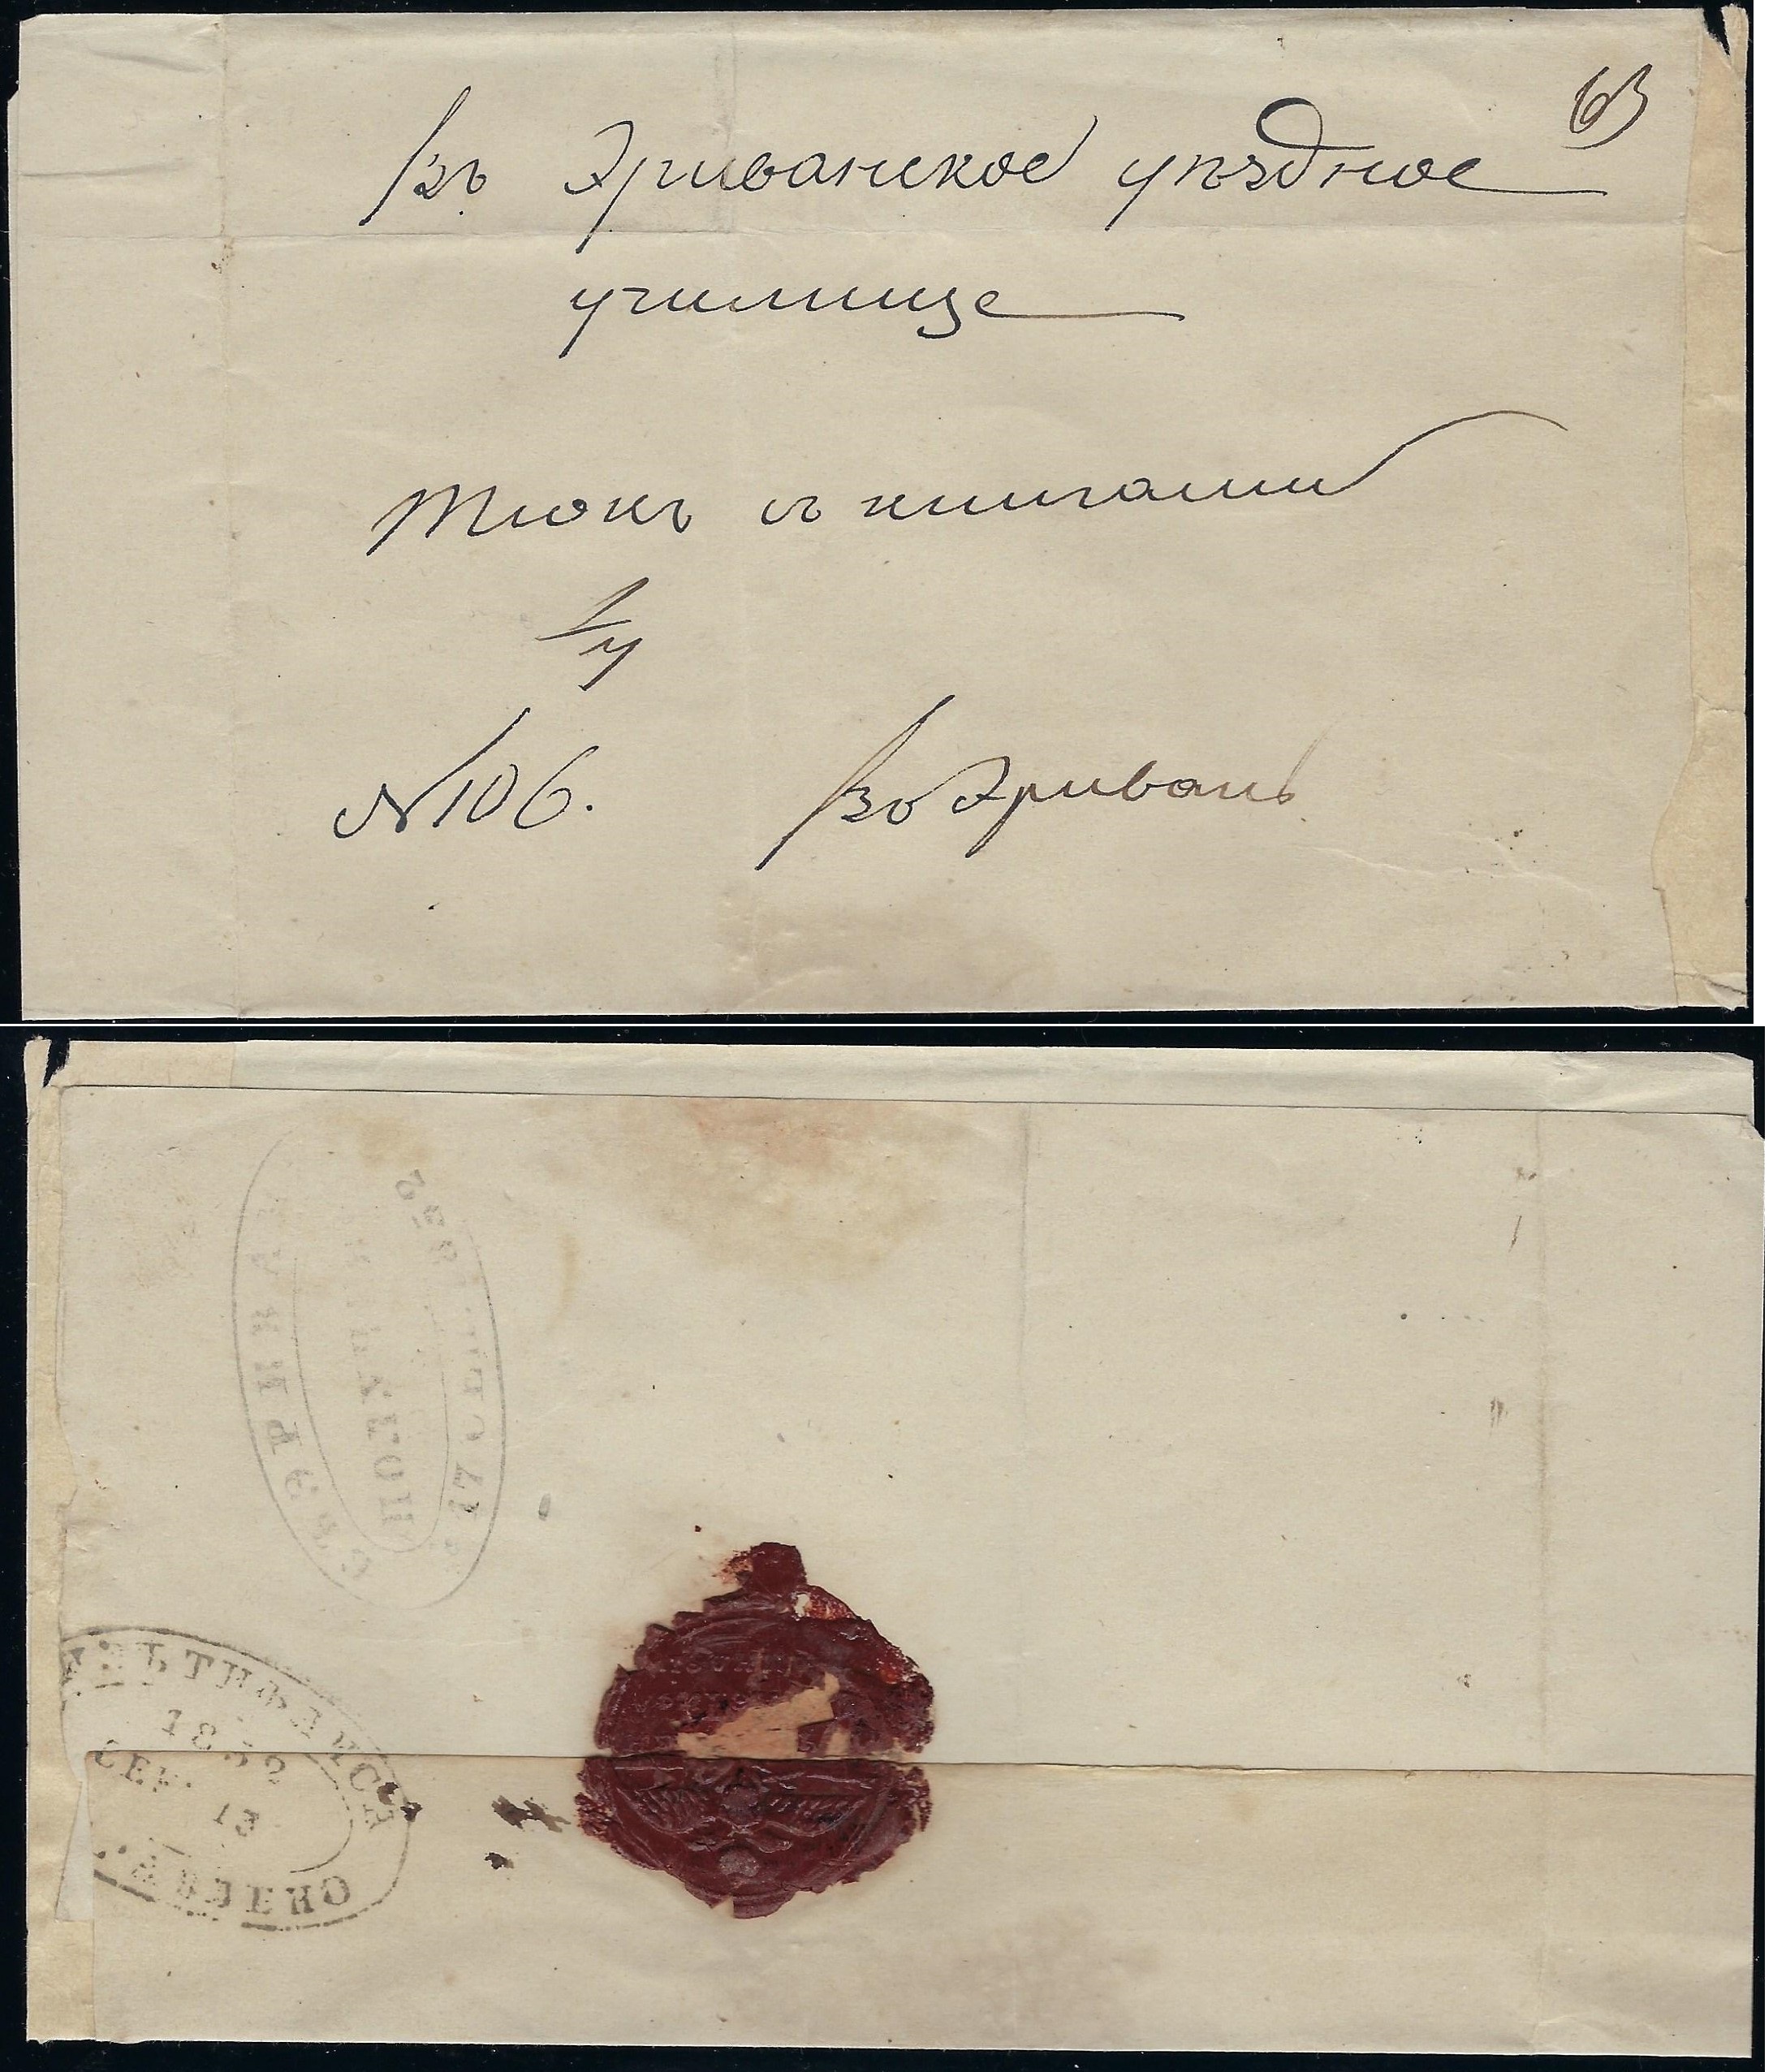 63
Въ Эриванское уѣздное
училище
Тюкъ съ книгами
1/4
№ 106.
Въ Эривань
ЭРИВАНИ
ПОЛУЧЕНО
ТИФЛИСѢ
1852
СЕН.
13